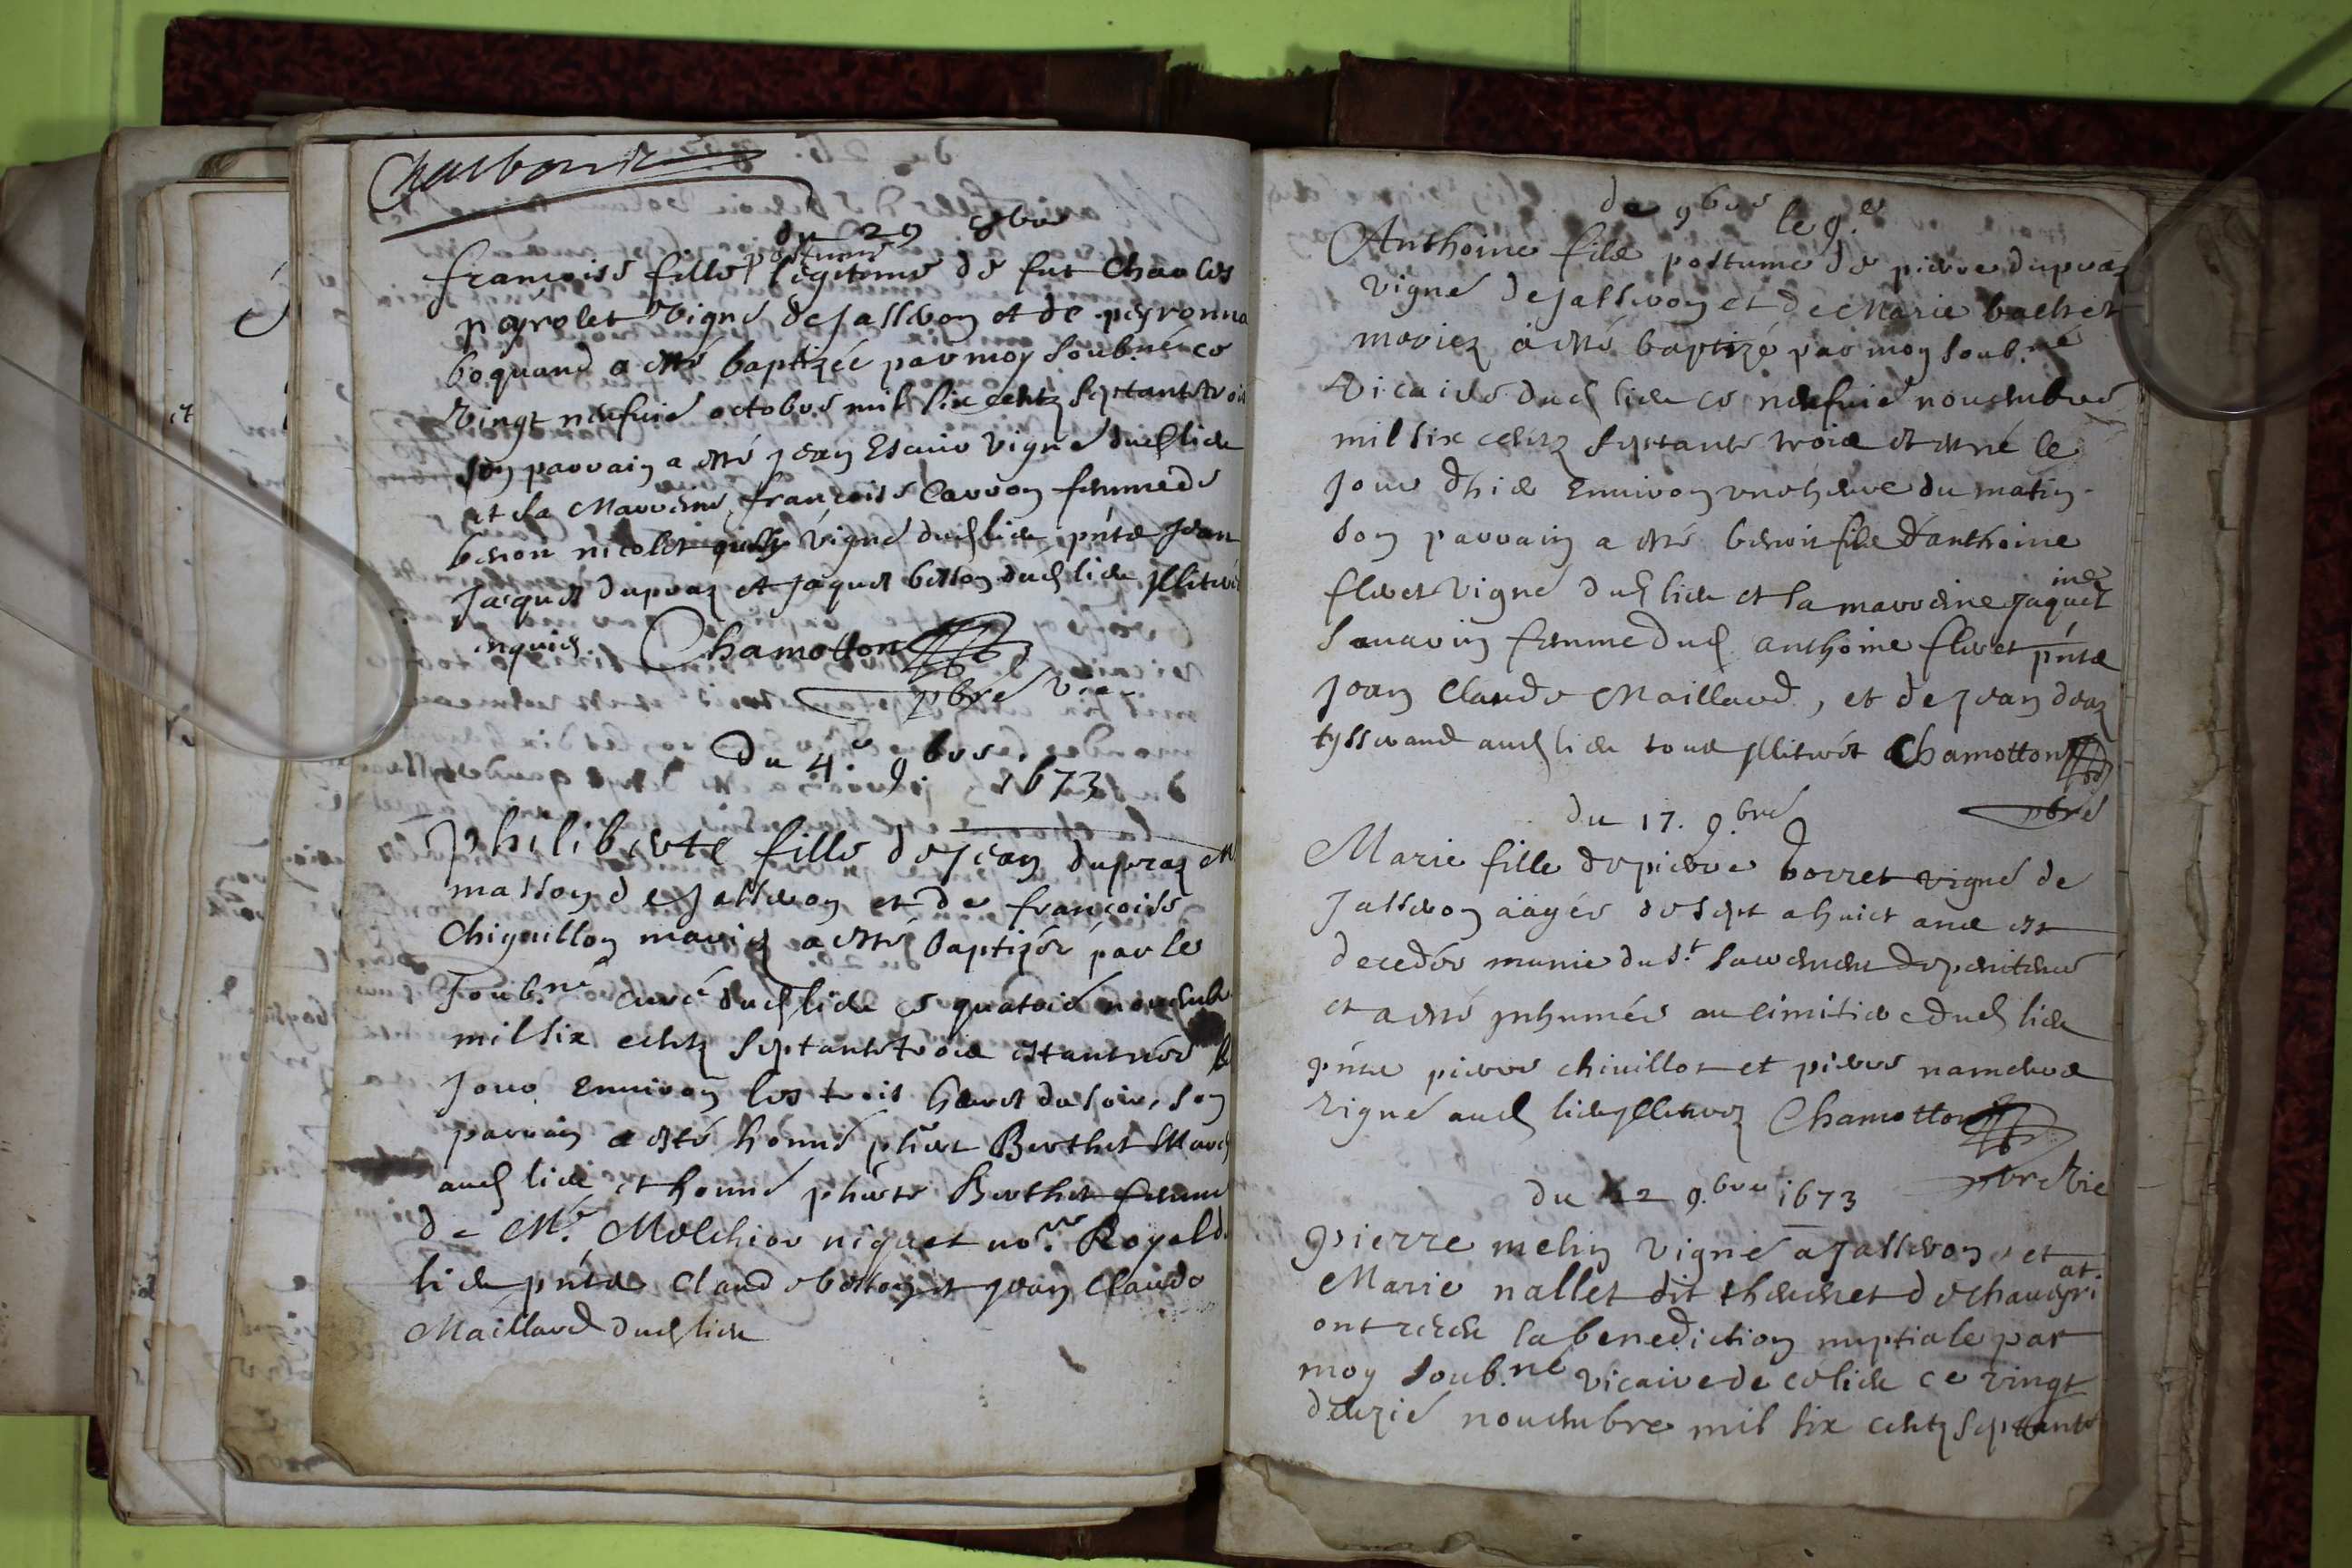 du 29 8bre
francoise fille postume legitime de fut Charles
peyrolet vigné de Jasseron et de peyronne
boquand a esté baptizée par moy soubné ce
vingt neufuié octobre mil six centz septante trois
son parrain a esté jean Escuio vigné dud lieu
et sa Marreine francoise Carron femme de
benoit nicolet vigné dud lieu pnts Jean
Jacques dupraz et Jaques beston dud lieu illitrés
enquis. Chamotton
pbre vic
du 4.e 9bre 1673
philiberte fille de jean dupraz Me
masson de Jasseron et de francoise
Chiquillon mariez a esté baptizée par le
soub.né curé dud lieu ce quatrié nouemb
mil six centz septante trois estant née le
jour enuiron les trois heures du soir, son
parrain a esté honné phiert Berthet March
aud lieu et honné phierte Berthet femme
de Me. Melchior niquet nore. Royal d.
lieu pnts Claude beston et jean Claude
Maillard dud lieu
de 9bre le 9.e
Anthoine fils postume de pierre dupraz
vigné de Jasseron et de Marie bachet
mariez a esté baptizé par moy soub.né
vicaire dud lieu ce neufuié nouembre
mil six centz septante trois et est né le
jour dhier enuiron une heure du matin
son parrain a esté benoit fils d'anthoine
floret vigné dud lieu et sa marreine jaquesine
sauarin femme dud anthoine floret pnts
jean Claude Maillard, et de jean
tysserand aud lieu tous illitrés Chamotton
pbre
du 17. 9.bre
Marie fille de pierre borret vigné de
Jasseron aagée de sept a huict ans est
decedée munie du St. sacrement de penitence
et a esté inhumée au cimitiere dud lieu
pnts pierre chiuillot et pierre
vigné aud lieu illitrez Chamotton
pbre vic
du 22 9.bre 1673
Pierre melin vigné a Jasseron, et
Marie nallet dit de
ont receu la benediction nuptiale par
moy soub.né vicaire de ce lieu ce vingt
deuzié nouembre mil six centz septante